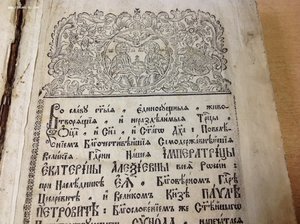 Во славу ст҃ыѧ, Единосущныѧ, живо-
творѧщїѧ, и нераздѣлимыѧ Трⷪ҇цы
Ѻ҆ц҃а, и Сн҃а, и Ст҃агѡ Дх҃а: Повелѣ-
нїемъ Бл҃гочестивѣйшїѧ Самодержавнѣйшїѧ
Великїѧ Гдⷭ҇рни Нашеѧ ИМПЕРАТРИЦЫ
ЕКАТЕРИНЫ АЛЕѮІЕВНЫ всеѧ Рѡссїи:
при Наслѣдникѣ ЕѦ, Бл҃говѣрномъ Гдⷭ҇рѣ
Цесаревичѣ и Великомъ Кнѧзѣ ПАѴЛѢ
ПЕТРОВИЧѢ: Бл҃гословенїемъ же Ст҃ѣйшагѡ
напечатасѧ